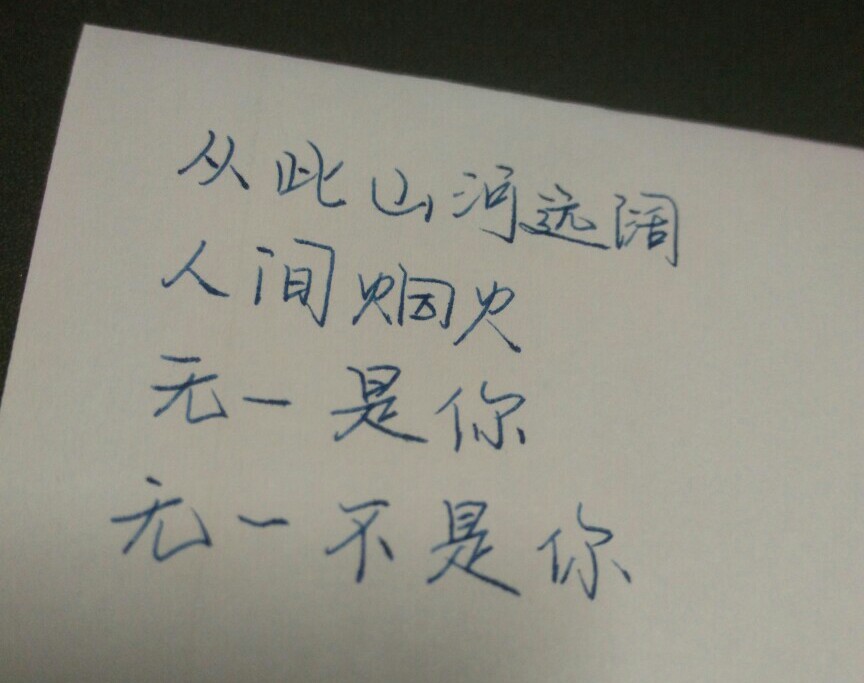 从此山河远阔
人间烟火
无一是你
无一不是你